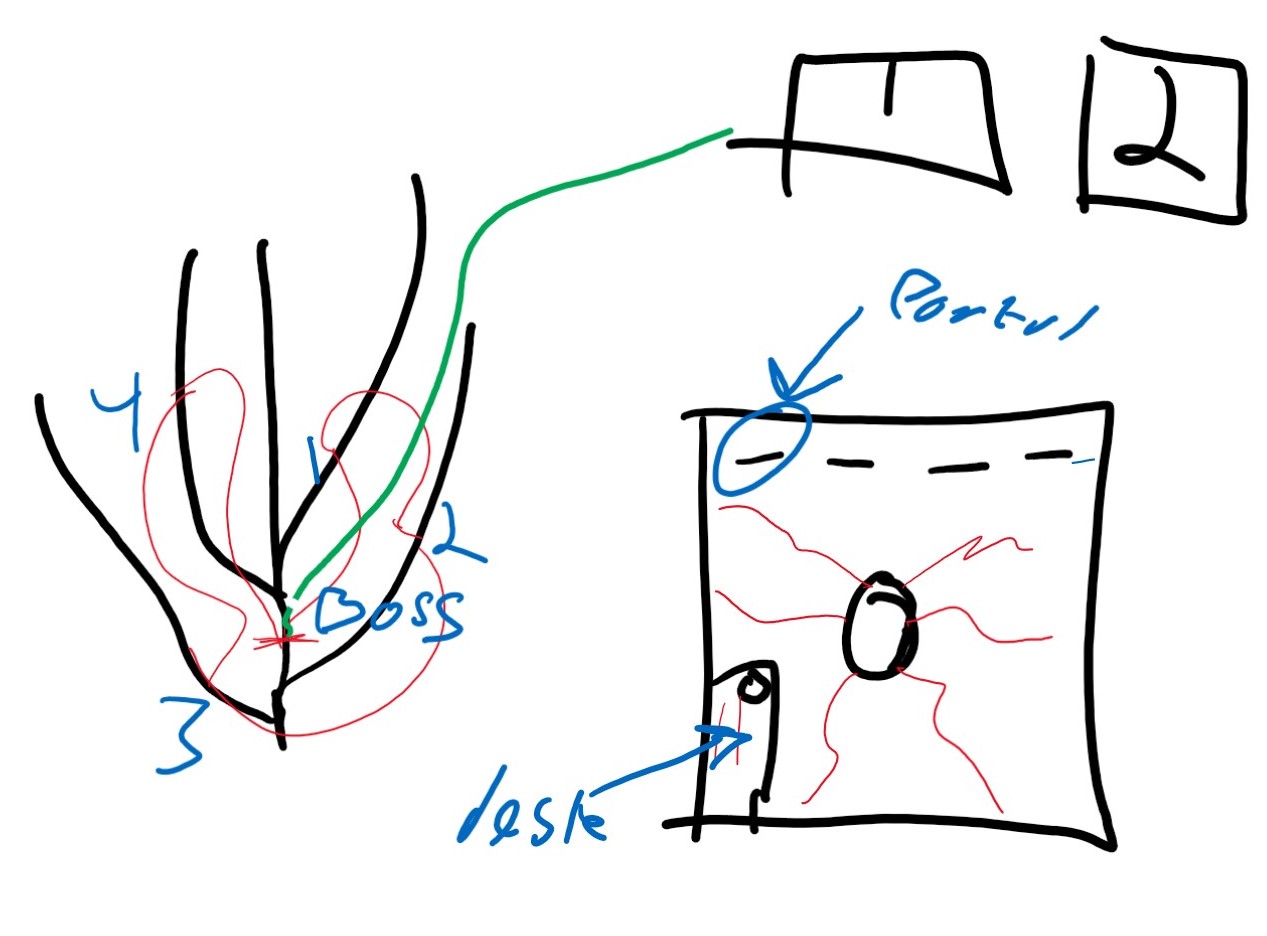 1
2
Portal
4
1
2
Boss
3
desk